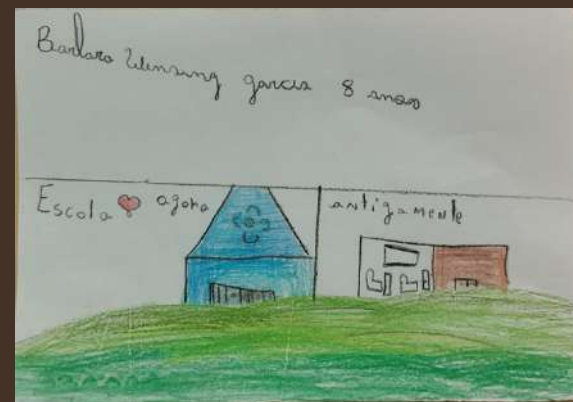 Barbara Wensing garcia 8 anos
Escola agora
antigamente